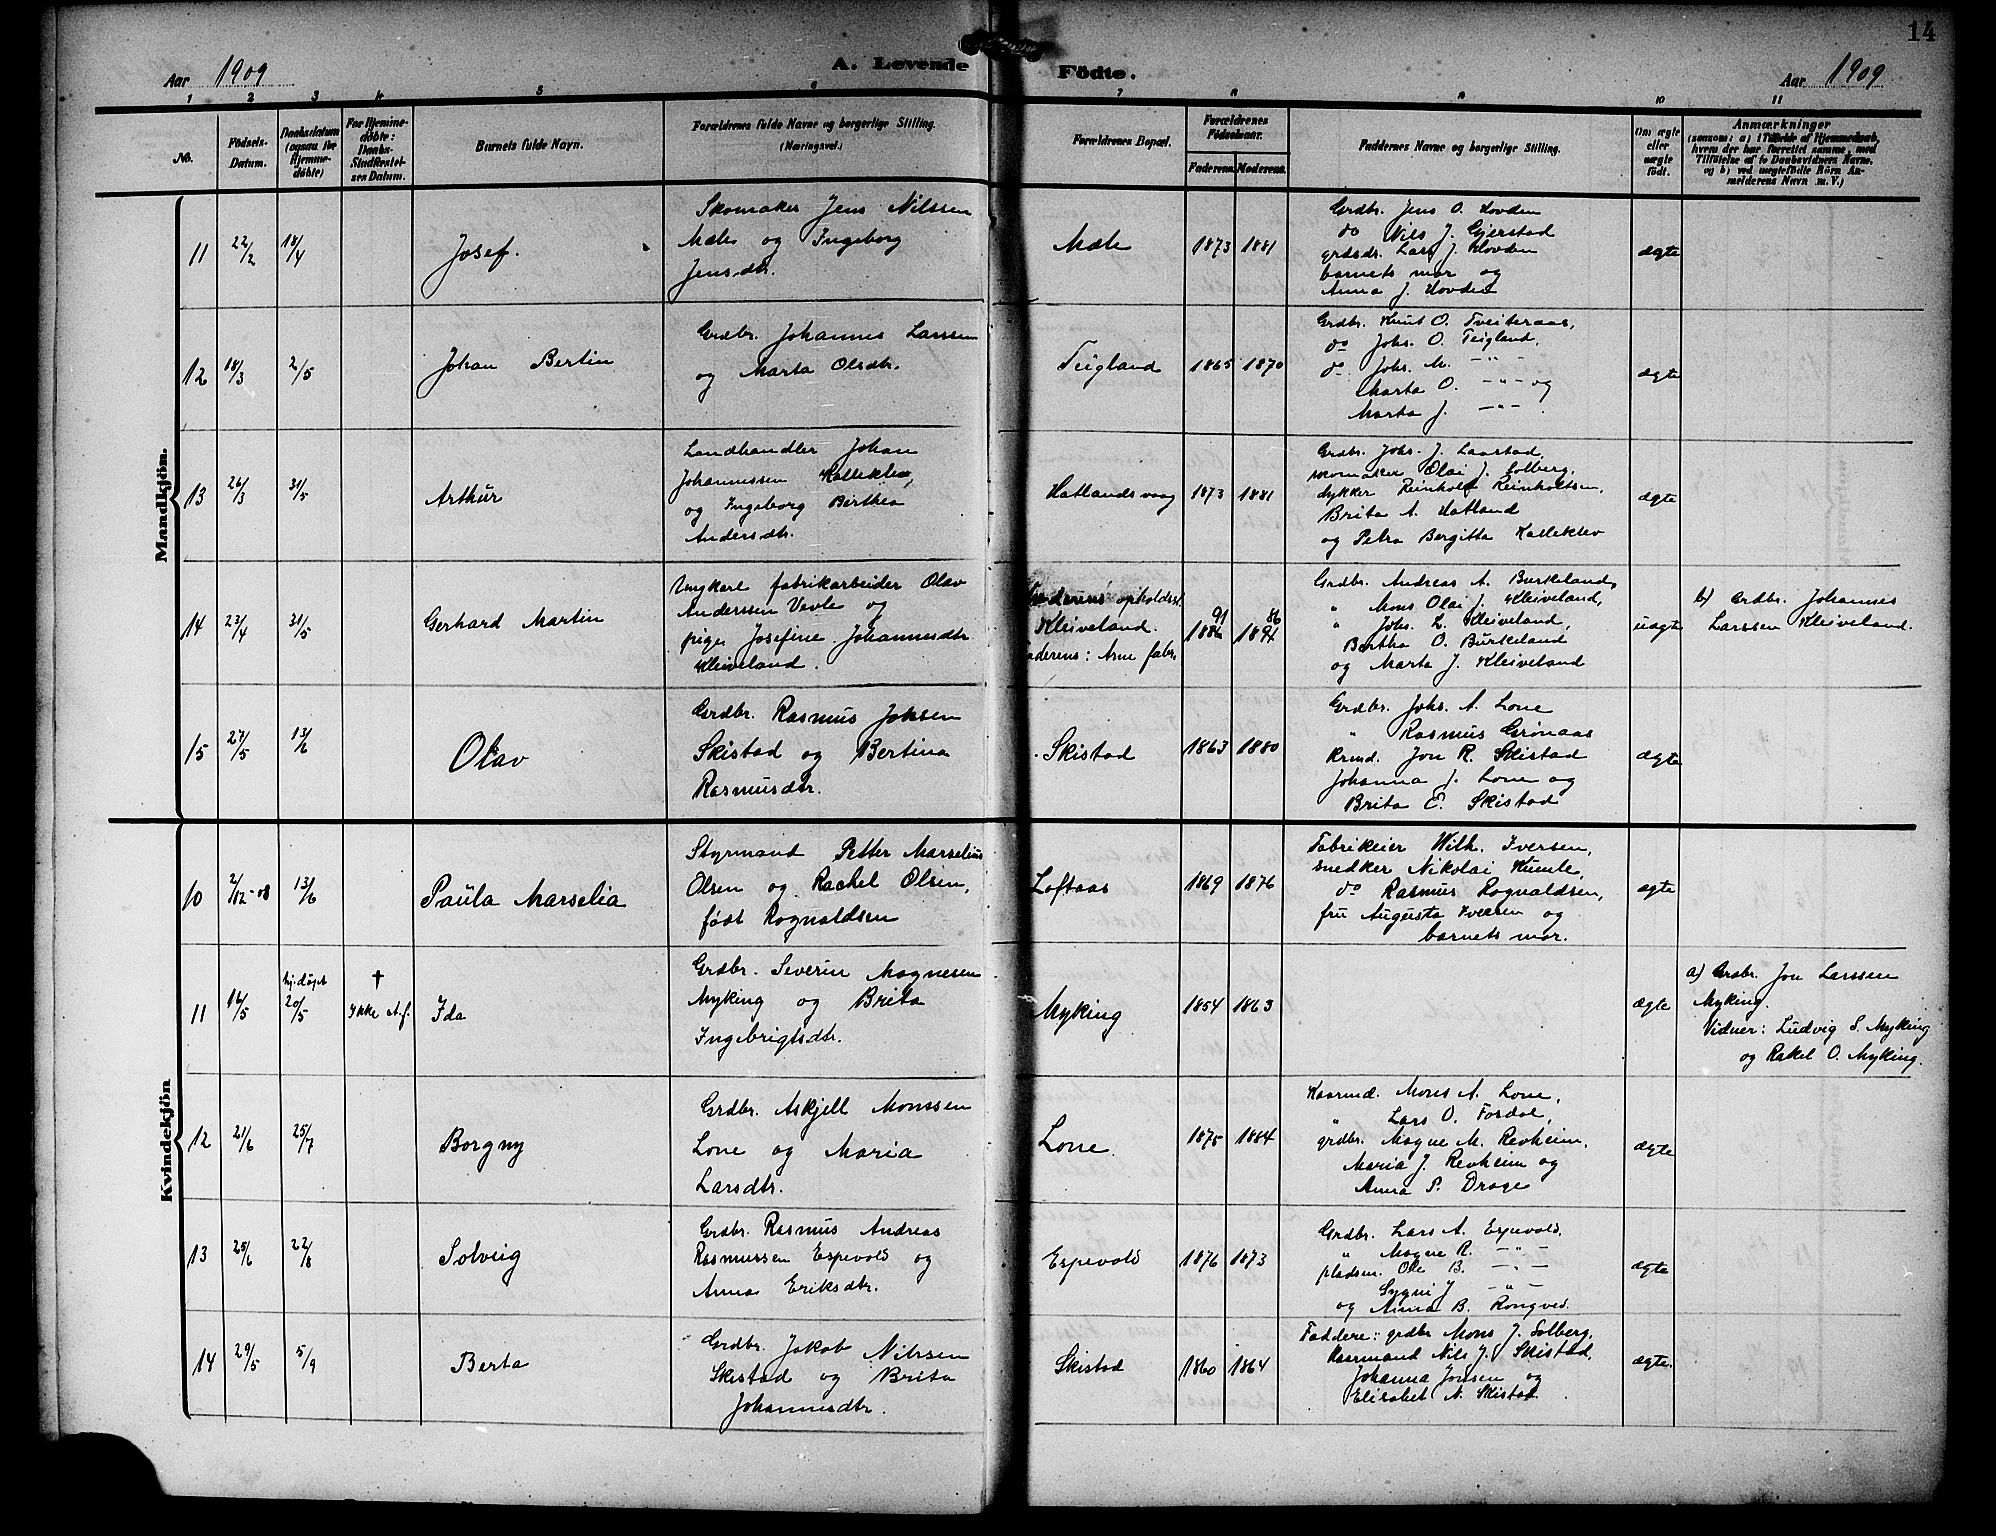 14
Aar 1909 A. Levende Födte. Aar 1909
1 2 3 4 5 6 7 8 9 10 11
No.
Födsels-
Datum.
Daabsdatum
(ogsaa for
Hjemme-
döbte)
For Hjemme-
döbte:
Daabs-
Stadfæstel-
ses Datum.
Barnets fulde Navn.
Forældrenes fulde Navne og borgerlige Stilling.
(Næringsvei.)
Forældrenes Bopæl.
Forældrenes
Födselsaar.
Faderens Moderens.
Faddernes Navne og borgerlige Stilling.
Om ægte
eller
uægte
födt.
Anmærkninger
(saasom: a) i Tilfælde af Hjemmedaab,
hvem der har forrettet samme, med
Tilföielse af to Daabsvidners Navne,
og b) ved uægtefödte Börn An-
melderens Navn m. V.)
Mandkjön.
11 22/2 18/4 Josef.
Skomaker Jens Nilssen
Mæle og Ingeborg
Jensdtr.
Mæle 1873 1881
Grdbr. Jens O. Hovden
do Nils J. Gjerstad
grdsdr. Lars J. Hovden
barnets mor og
Anna J. Hovden
ægte
12 18/3 2/5 Johan Bertin
Grdbr. Johannes Larssen
og Marta Olsdtr.
Teigland 1865 1870
Grdbr. Knut O. Tveiteraas,
do Johs. O. Teigland,
do. Johs. M. -"-
Marta O. -"- og
Marta J. -"-
ægte
13 26/3 31/5 Arthur
Landhandler Johan
Johannessen Kalleklev,
og Ingeborg Birthea
Andersdtr.
Hatlandsvaag 1873 1881
Grdbr. Johs. J. Laastad,
skomaker Olai J. Solberg,
dykker Reinholt Reinholtsen,
Brita A. Hatland
og Petra Bergitta Kalleklev
ægte
14 23/4 31/5 Gerhard Martin
Ungkarl fabrikarbeider Olav
Anderssen Vevle og
pige Josefine Johannesdtr
Kleiveland.
Moderens opholdsst.
Kleiveland.
Faderens: Arne fabr.
91 86
1886 1891
Grdbr. Andreas A. Burkeland,
" Mons Olai J. Kleiveland,
" Johs. L. Kleiveland,
Bertha O. Burkeland
og Marta J. Kleiveland
uægte
b) Grdbr. Johannes
Larssen Kleiveland.
15 27/5 13/6 Olav
Grdbr. Rasmus Johsen
Skistad og Bertina
Rasmusdtr.
Skistad 1863 1880
Grdbr. Johs. A. Lone
" Rasmus Grønaas
Krmd. Jon R. Skistad
Johanna J. Lone og
Brita E. Skistad
ægte
Kvindekjön
10 2/12-08 13/6 Paula Marselia
Styrmand Petter Marselius
Olsen og Rachel Olsen,
født Rognaldsen
Loftaas 1869 1876
Fabrikeier Wilh. Iversen,
snedker Nikolai Kumle,
do Rasmus Rognaldsen,
fru Augusta Iversen og
barnets mor.
ægte
11 16/5 hj.døpt 20/5 † Ikke st.f. Ida
Grdbr. Severin Magnesen
Myking og Brita
Ingebrigtsdtr.
Myking 1854 1863
ægte
a) Grdbr. Jon Larssen
Myking.
Vidner: Ludvig S. Myking
og Rakel O. Myking.
12 21/6 25/7 Borgny
Grdbr. Askjell Monssen
Lone og Maria
Larsdtr.
Lone 1875 1884
Kaarmd. Mons A. Lone,
" Lars O. Fordal,
grdbr. Magne M. Revheim,
Maria J. Revheim og
Anna P. Drage
ægte
13 25/6 22/8 Solveig
Grdbr. Rasmus Andreas
Rasmussen Espevold og
Anna Eriksdtr.
Espevold 1876 1873
Grdbr. Lars A. Espevold,
" Magne R. -"-
pladsm. Ole B. -"-
Sygni J -"-
og Anna B. Rongved.
ægte
14 29/5 5/9 Berta
Grdbr. Jakob Nilssen
Skistad og Brita
Johannesdtr.
Skistad 1860 1864
Faddere: grdbr Mons J. Solberg,
Kaarmand Nils J. Skistad,
Johanna Jonsen og
Elisabet N. Skistad
ægte.